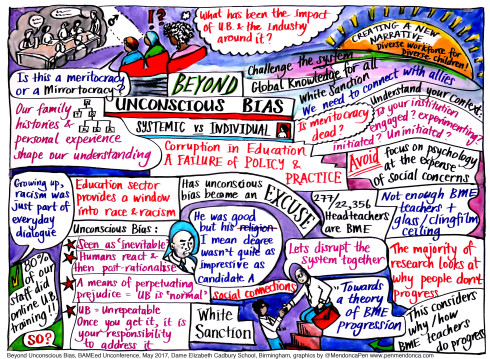 What has been the impact
of U.B. & the Industry
around it?
CREATING A NEW
NARRATIVE
Diverse workforce for
Diverse children!
I?
Is this a meritocracy
or a Mirrortocracy?
BEYOND
UNCONSCIOUS BIAS
SYSTEMIC vs INDIVIDUAL
Challenge the system
Global Knowledge for all
White Sanction
We need to connect with allies
Is meritocracy
dead?
Understand your context:
Is your institution
engaged? experimenting?
initiated? Uninitiated?
Our family
histories &
personal experience
shape our understanding
Corruption in Education
A FAILURE of POLICY &
PRACTICE
Avoid
focus on psychology
at the expense
of social concerns
Growing up,
racism was
just part of
everyday
dialogue
Education sector
provides a window
into race & racism
Has unconscious
bias become an
EXCUSE
277/
22,356
Headteachers
are BME
Not enough BME
teachers +
glass/clingfilm
ceiling
Unconscious Bias:
Seen as 'inevitable'
Humans react &
then post-rationalise
A means of perpetuating
prejudice = UB is 'normal'
UB = Unrepeatable
Once you get it, it is
your responsibility
to address it
He was good
but his religion
I mean degree
wasn't quite as
impressive as
candidate A
80%
of our
staff did
online U.B.
training!!
SO?
social connections
White
Sanction
Lets disrupt the
system together
Towards
a theory
of BME
progression
The majority of
research looks at
why people don't
progress
This considers
why/how
BME teachers do progress
Beyond Unconscious Bias, BAMEed Unconference, May 2017, Dame Elizabeth Cadbury School, Birmingham, graphics by @MendoncaPen www.penmendonca.com